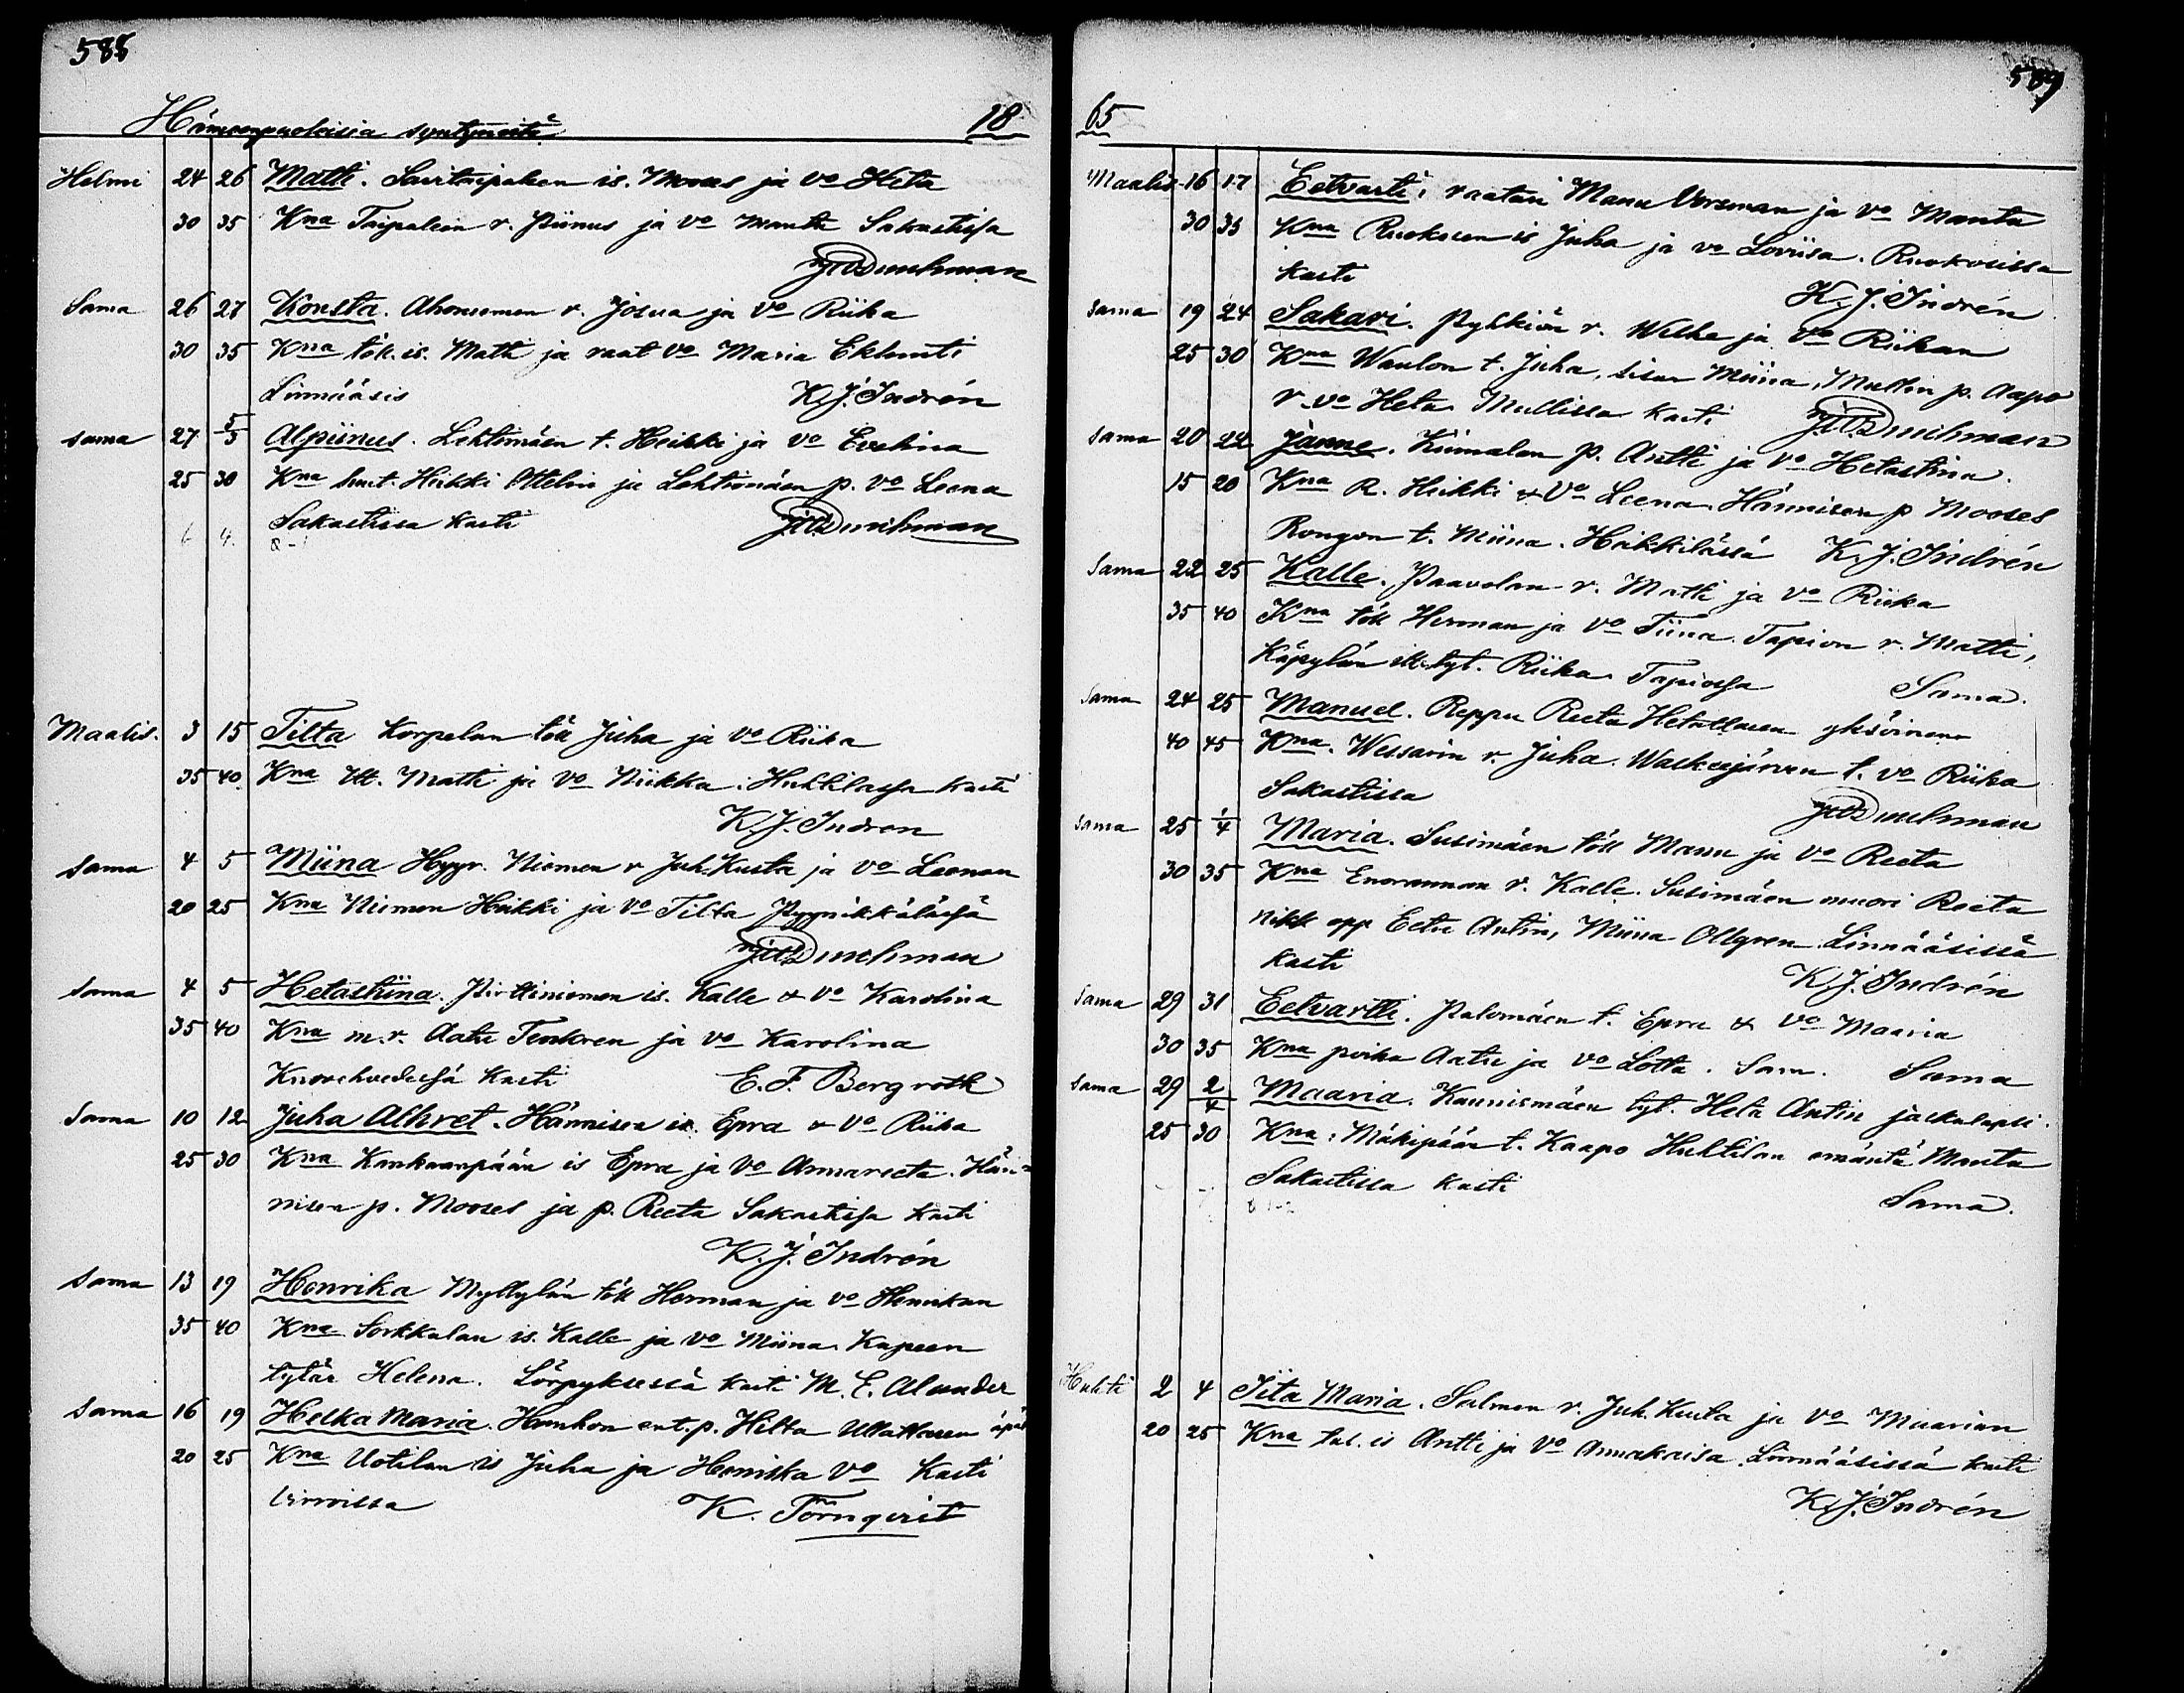 588
Hämeenpuoleisia syntyneitä 18
Helmi 24 26 Matti. Savitaipaleen is. Mooses ja vo Heta
30 35 Kna Taipaleen r. Piinus ja vo Manta Sakastissa
Sama 26 27 Konsta. Ahonniemen r. Josua ja Vo Riika
30 35 Kna töll. is. Matti ja raat vo Maria Eklunti
Linnääsis K. J. Indrén
sama 27 5/3 Alpiinus. Lehtimäen t. Heikki ja vo Evelina
25 30 Kna huut. Heikki Ottelin ja Lehtimäen p. vo Leena
Sakastissa kasti
Maalis. 3 15 Tilta Korpelan töll Juha ja Vo Riika
35 40 Kna itt. Matti ja Vo Niikka. Huhtilassa kasti
K. J. Indren
sama 4 5 Miina Hyyr. Niemen r Juh. Kusta ja Vo Leenan
20 25 Kna Niemen Heikki ja Vo Tilta Pyynikkälässä
sama 4 5 Hetastiina. Pirttiniemen is. Kalle & Vo Karolina
35 40 Kna m. r. Aatu Tenkren ja vo Karolina
Kuorehvedessä kasti E. F. Bergroth
Sama 10 12 Juha Alhret. Hännisen is. Epra & Vo Riika
25 30 Kna Kankaanpään is Epra ja Vo Annareeta. Hän-
nisen p. Mooses ja p. Reeta Sakastissa kasti
K. J. Indrén
sama 13 19 Henrika Myllylän töll Herman ja vo Henrikan
35 40 Kna Sorkkalan is. Kalle ja vo Miina. Kapeen
tytär Helena. Lörpyksessä kasti M. E. Alander
sama 16 19 Helka Maria. Hunhon ent. p. Hilta Ullattaren
20 25 Kna Uotilan is Juha ja Henriska Vo Kasti
Virroissa K. Törnqvist
589
65
Maalis. 16 17 Eetvarti, raatari Manu Versman ja vo Manta
30 35 Kna Ruokosen is Juha ja vo Loviisa. Ruokosissa
kasti K. J. Indrén
sama 19 24 Sakari. Pyhkiön r. Wilhe ja vo Riikan
25 30 Kna Waulon t. Juha, sisar Miina, Mullin p. Aapo
r. vo Heta Mullissa kasti
sama 20 22 Janne. Kiimalan p. Antti ja vo Hetastina.
15 20 Kna R. Heikki & Vo Leena. Hännisen p Mooses
Rongon t. Miina. Heikkilässä K. J. Indrén
Sama 22 25 Kalle. Paavolan r. Matti ja vo Riika
35 40 Kna töll Herman ja Vo Tiina. Tapion r. Matti,
Käpylän itt. tyt. Riika Tapiossa Sama.
sama 24 25 Manuel. Reppu Reeta Hetattaren yksöinen
40 45 Kna. Wessarin r. Juha. Walkeejärven t. vo Riika
Sakastissa
sama 25 1/4 Maria. Susimäen töll Manu ja vo Reeta
30 35 Kna Enorannan r. Kalle. Susimäen muori Reeta
nikk opp Eetu Antin, Miina Ollgren Linnääsissä
kasti K. J. Indrén
Sama 29 31 Eetvartti. Palomäen t. Epra & Vo Maaria
30 35 Kna poika Aatu ja vo Lotta. Sam. Sama
sama 29 2/4 Maaria. Kaunismäen tyt. Heta Antin jalkalapsi.
25 30 Kna: Mäkipään t. Kaapo Huhtilan emäntä Manta
Sakastissa kasti Sama.
Huhti 2 4 Iita Maria. Salmen r. Juh. Kusta ja vo Maarian
20 25 Kna tal. is Antti ja Vo Annakaisa. Linnääsissä kasti
K. J. Indrén